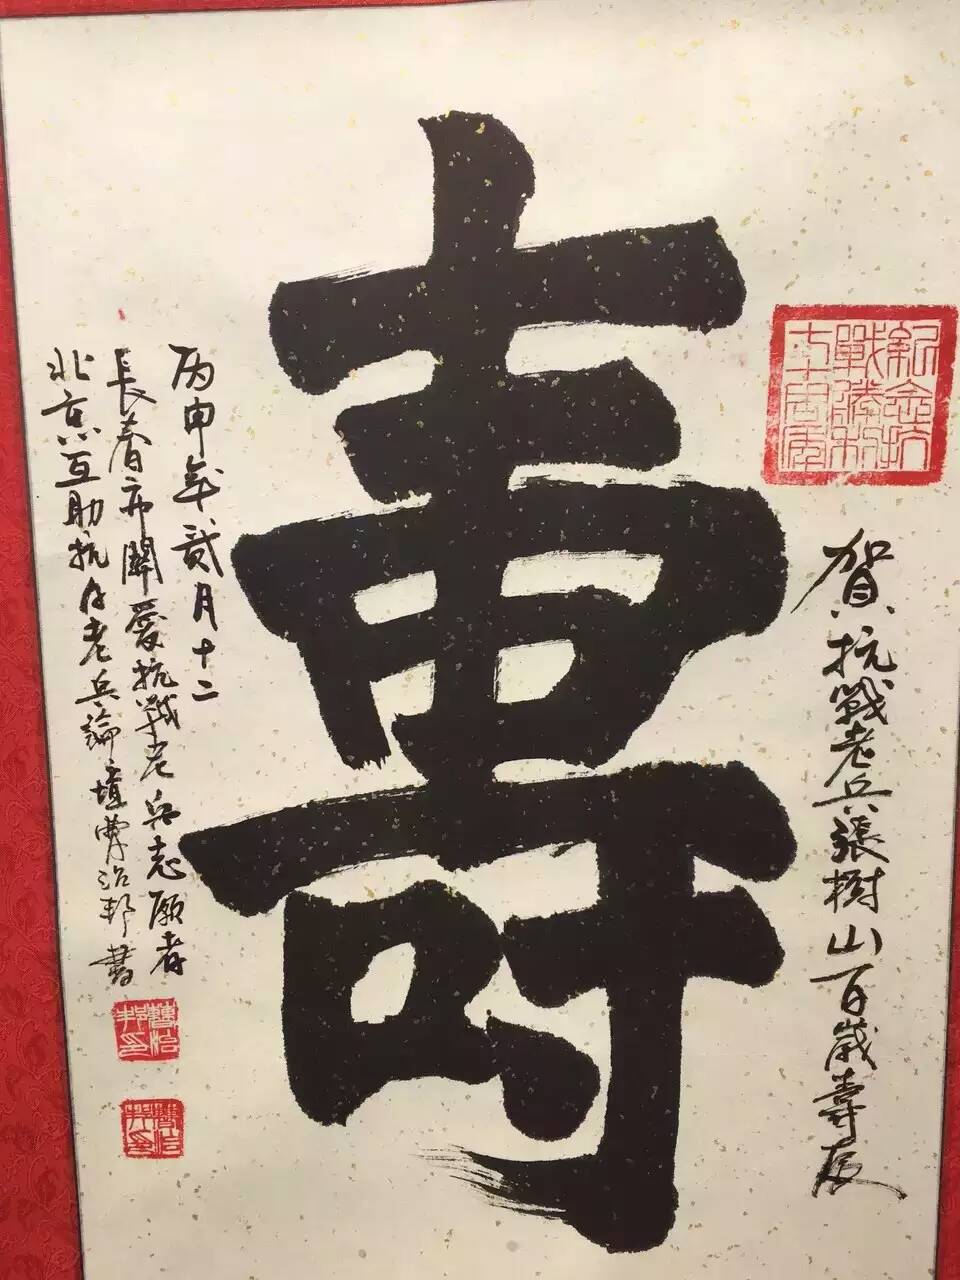 紀念抗
戰勝利
七十周年
賀抗戰老兵張樹山百歲壽辰
壽
丙申年貳月十二
長春市關愛抗戰老兵志願者
北京互助抗日老兵論壇曹治邦書
曹治
邦印